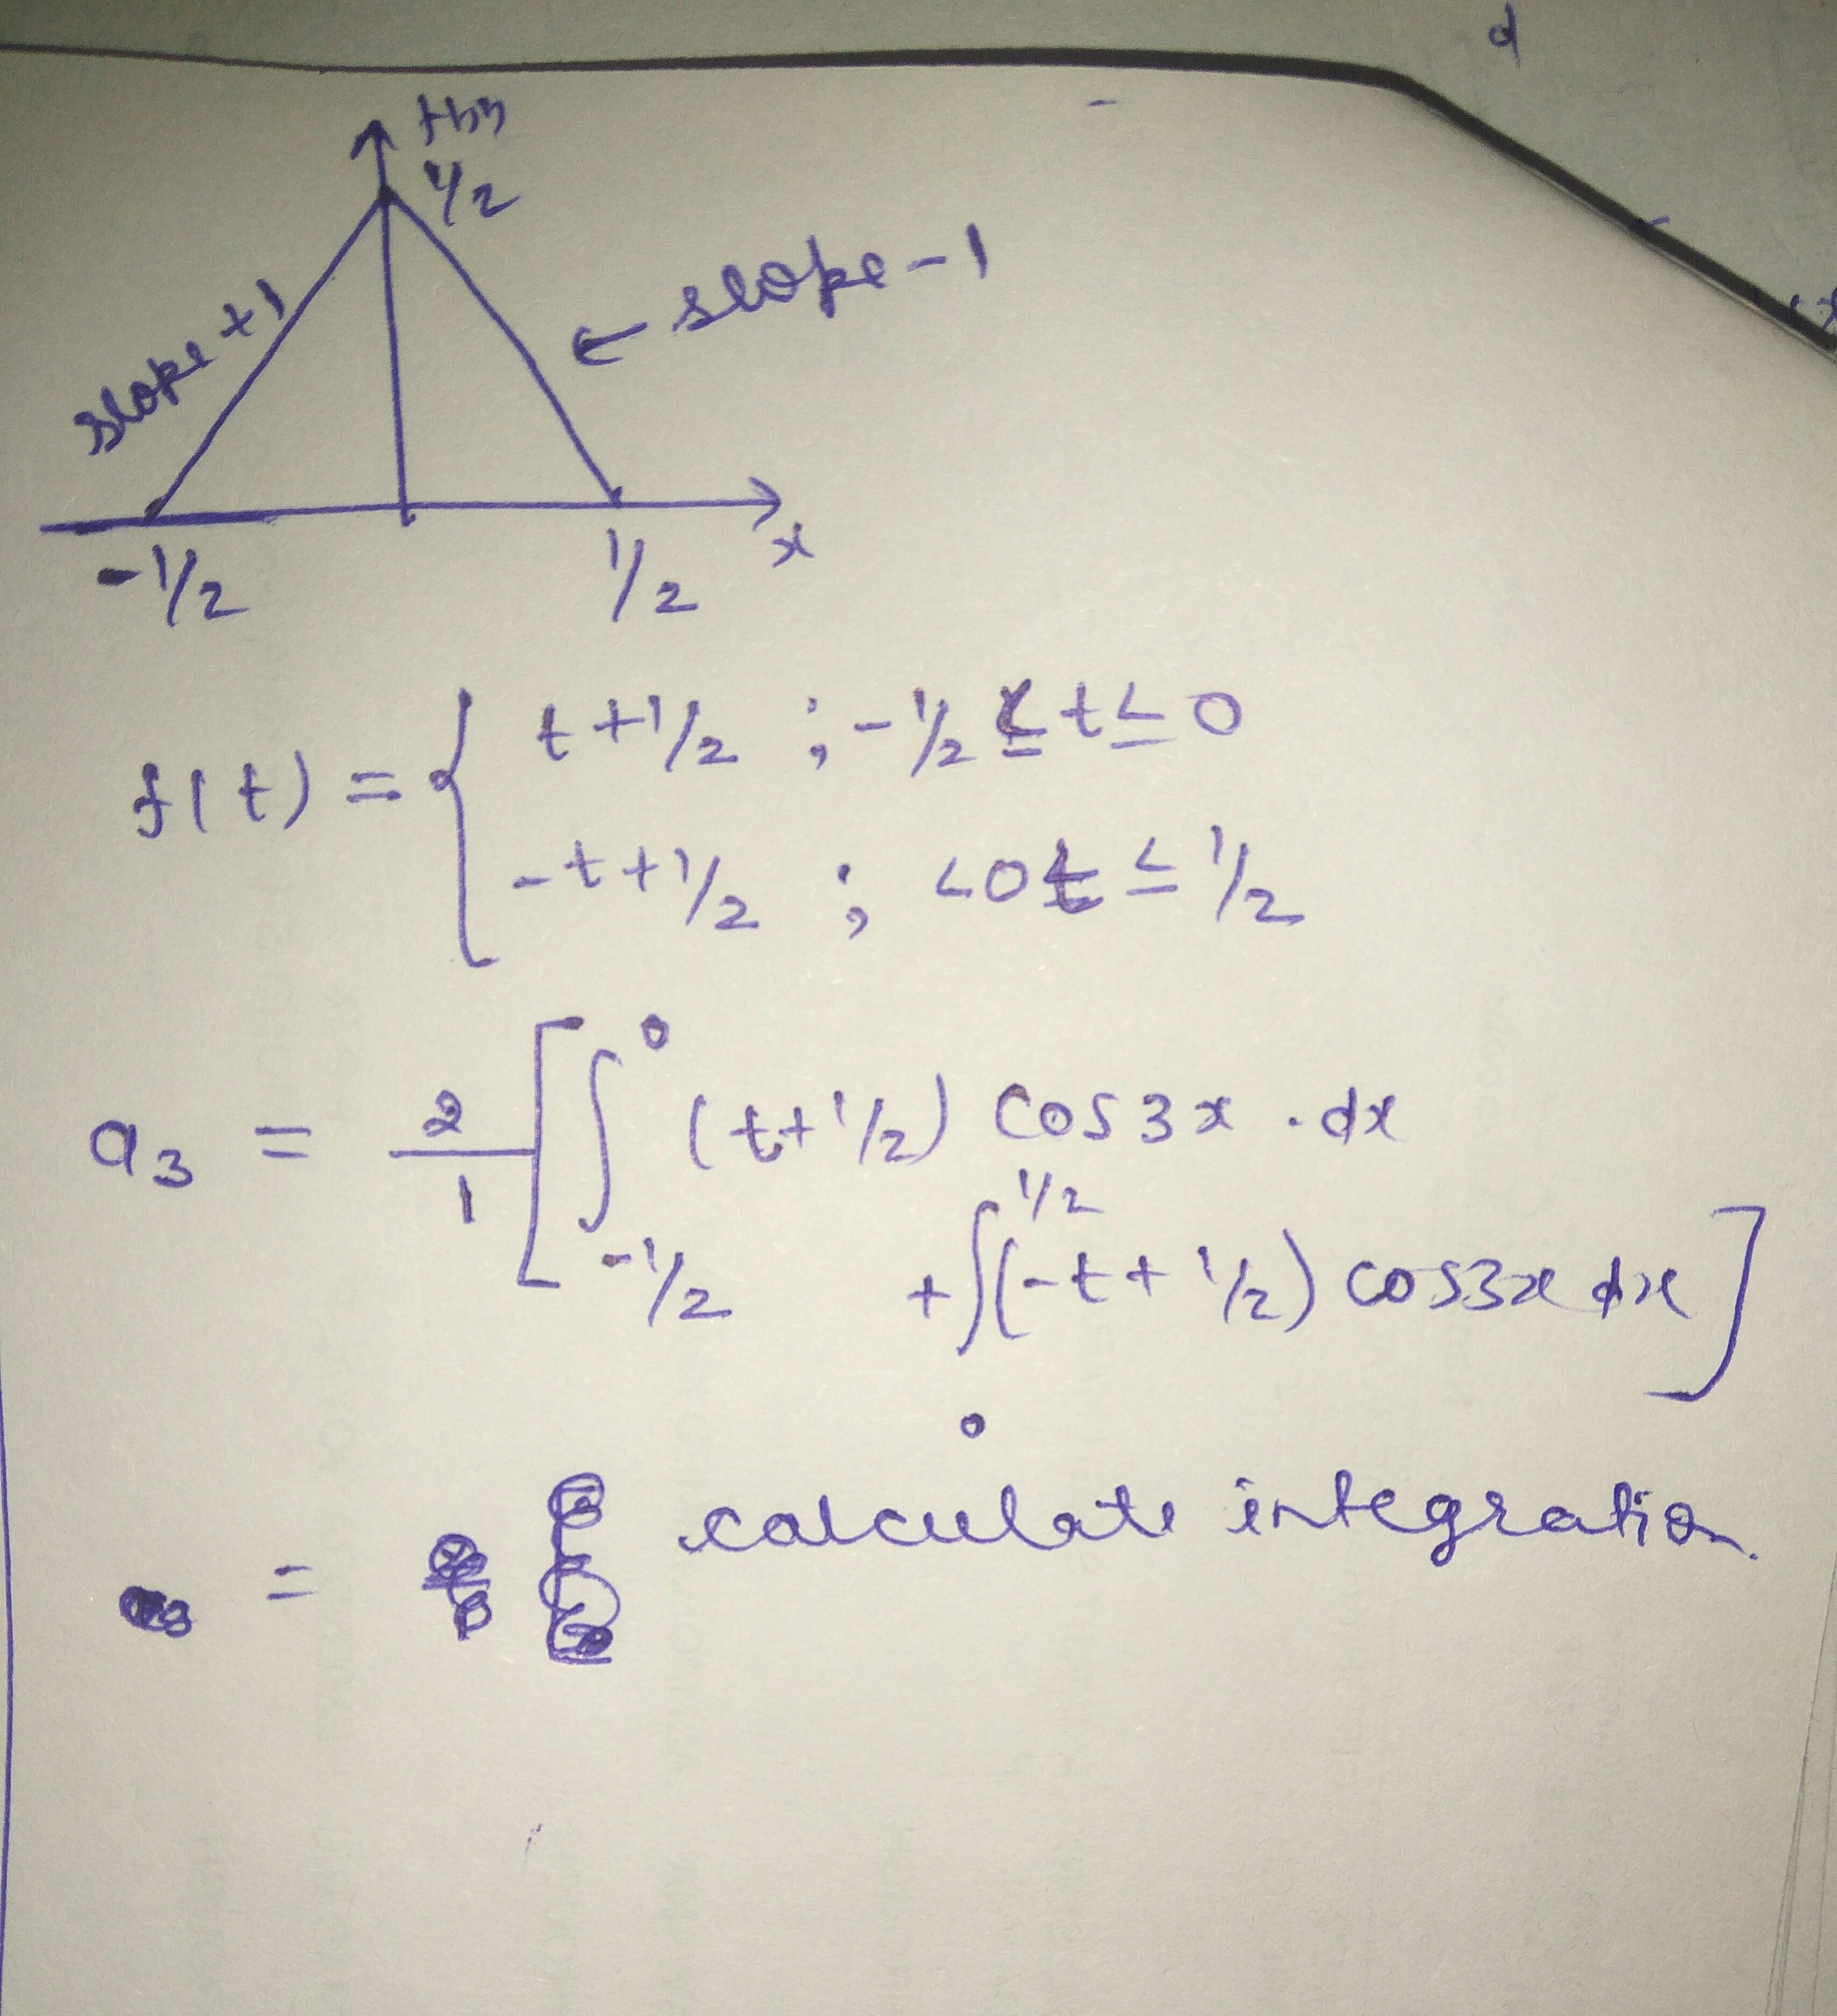 d
1/2
slope +1
← slope -1
-1/2
1/2
x
f(t) = { t + 1/2 ; -1/2 ≤ t ≤ 0
-t + 1/2 ; <0t ≤ 1/2
a3 = 2/1 [ ∫ 0 -1/2 (t + 1/2) cos 3x . dx
+ ∫ 1/2 0 (-t + 1/2) cos3x dx ]
= calculate integration.